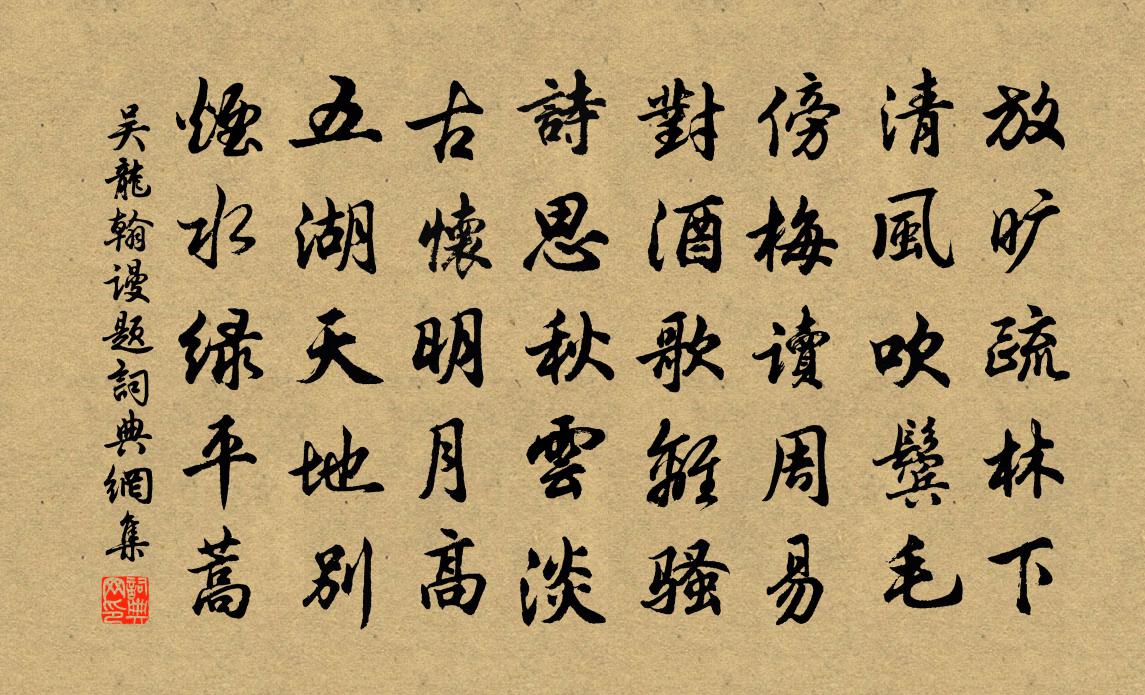 放旷疏林下
清風吹鬓毛
傍梅讀周易
對酒歌離騷
詩思秋雲淡
古懷明月高
五湖天地别
煙水绿平蒿
吴龍翰谩题詞典網集
詞典网印